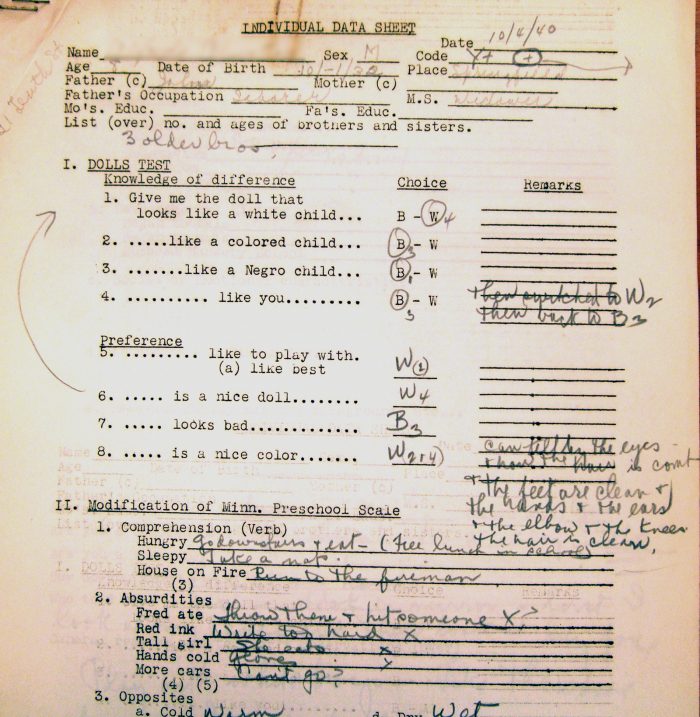 INDIVIDUAL DATA SHEET
Date 10/4/40
Name Sex M Code X+ +
Age Date of Birth Place Springfield
Father (c) Mother (c)
Father's Occupation M.S.
Mo's. Educ. Fa's. Educ.
List (over) no. and ages of brothers and sisters.
3 older bros.
I. DOLLS TEST
Knowledge of difference Choice Remarks
1. Give me the doll that
looks like a white child... B - W 4
2. .....like a colored child... B - W 3
3. .......like a Negro child... B - W 1
4. .......... like you......... B - W 3 then switched to W2
then back to B3
Preference
5. ......... like to play with.
(a) like best W(2)
6. ..... is a nice doll........ W4
7. ..... looks bad............. B3
8. ..... is a nice color....... W2+4) can tell by the eyes
+ how the hair is comb
+ the feet are clean +
the hands + the ears
+ the elbow + the knees
the hair is clean.
II. Modification of Minn. Preschool Scale
1. Comprehension (Verb)
Hungry Go downstairs + eat - (Free lunch in school)
Sleepy Take a nap.
House on Fire Run to the fireman
(3)
2. Absurdities
Fred ate throw there + hit someone X ?
Red ink Write too hard X
Tall girl She eats X
Hands cold gloves X
More cars Can't go ?
(4) (5)
3. Opposites
a. Cold Warm d. Dry Wet